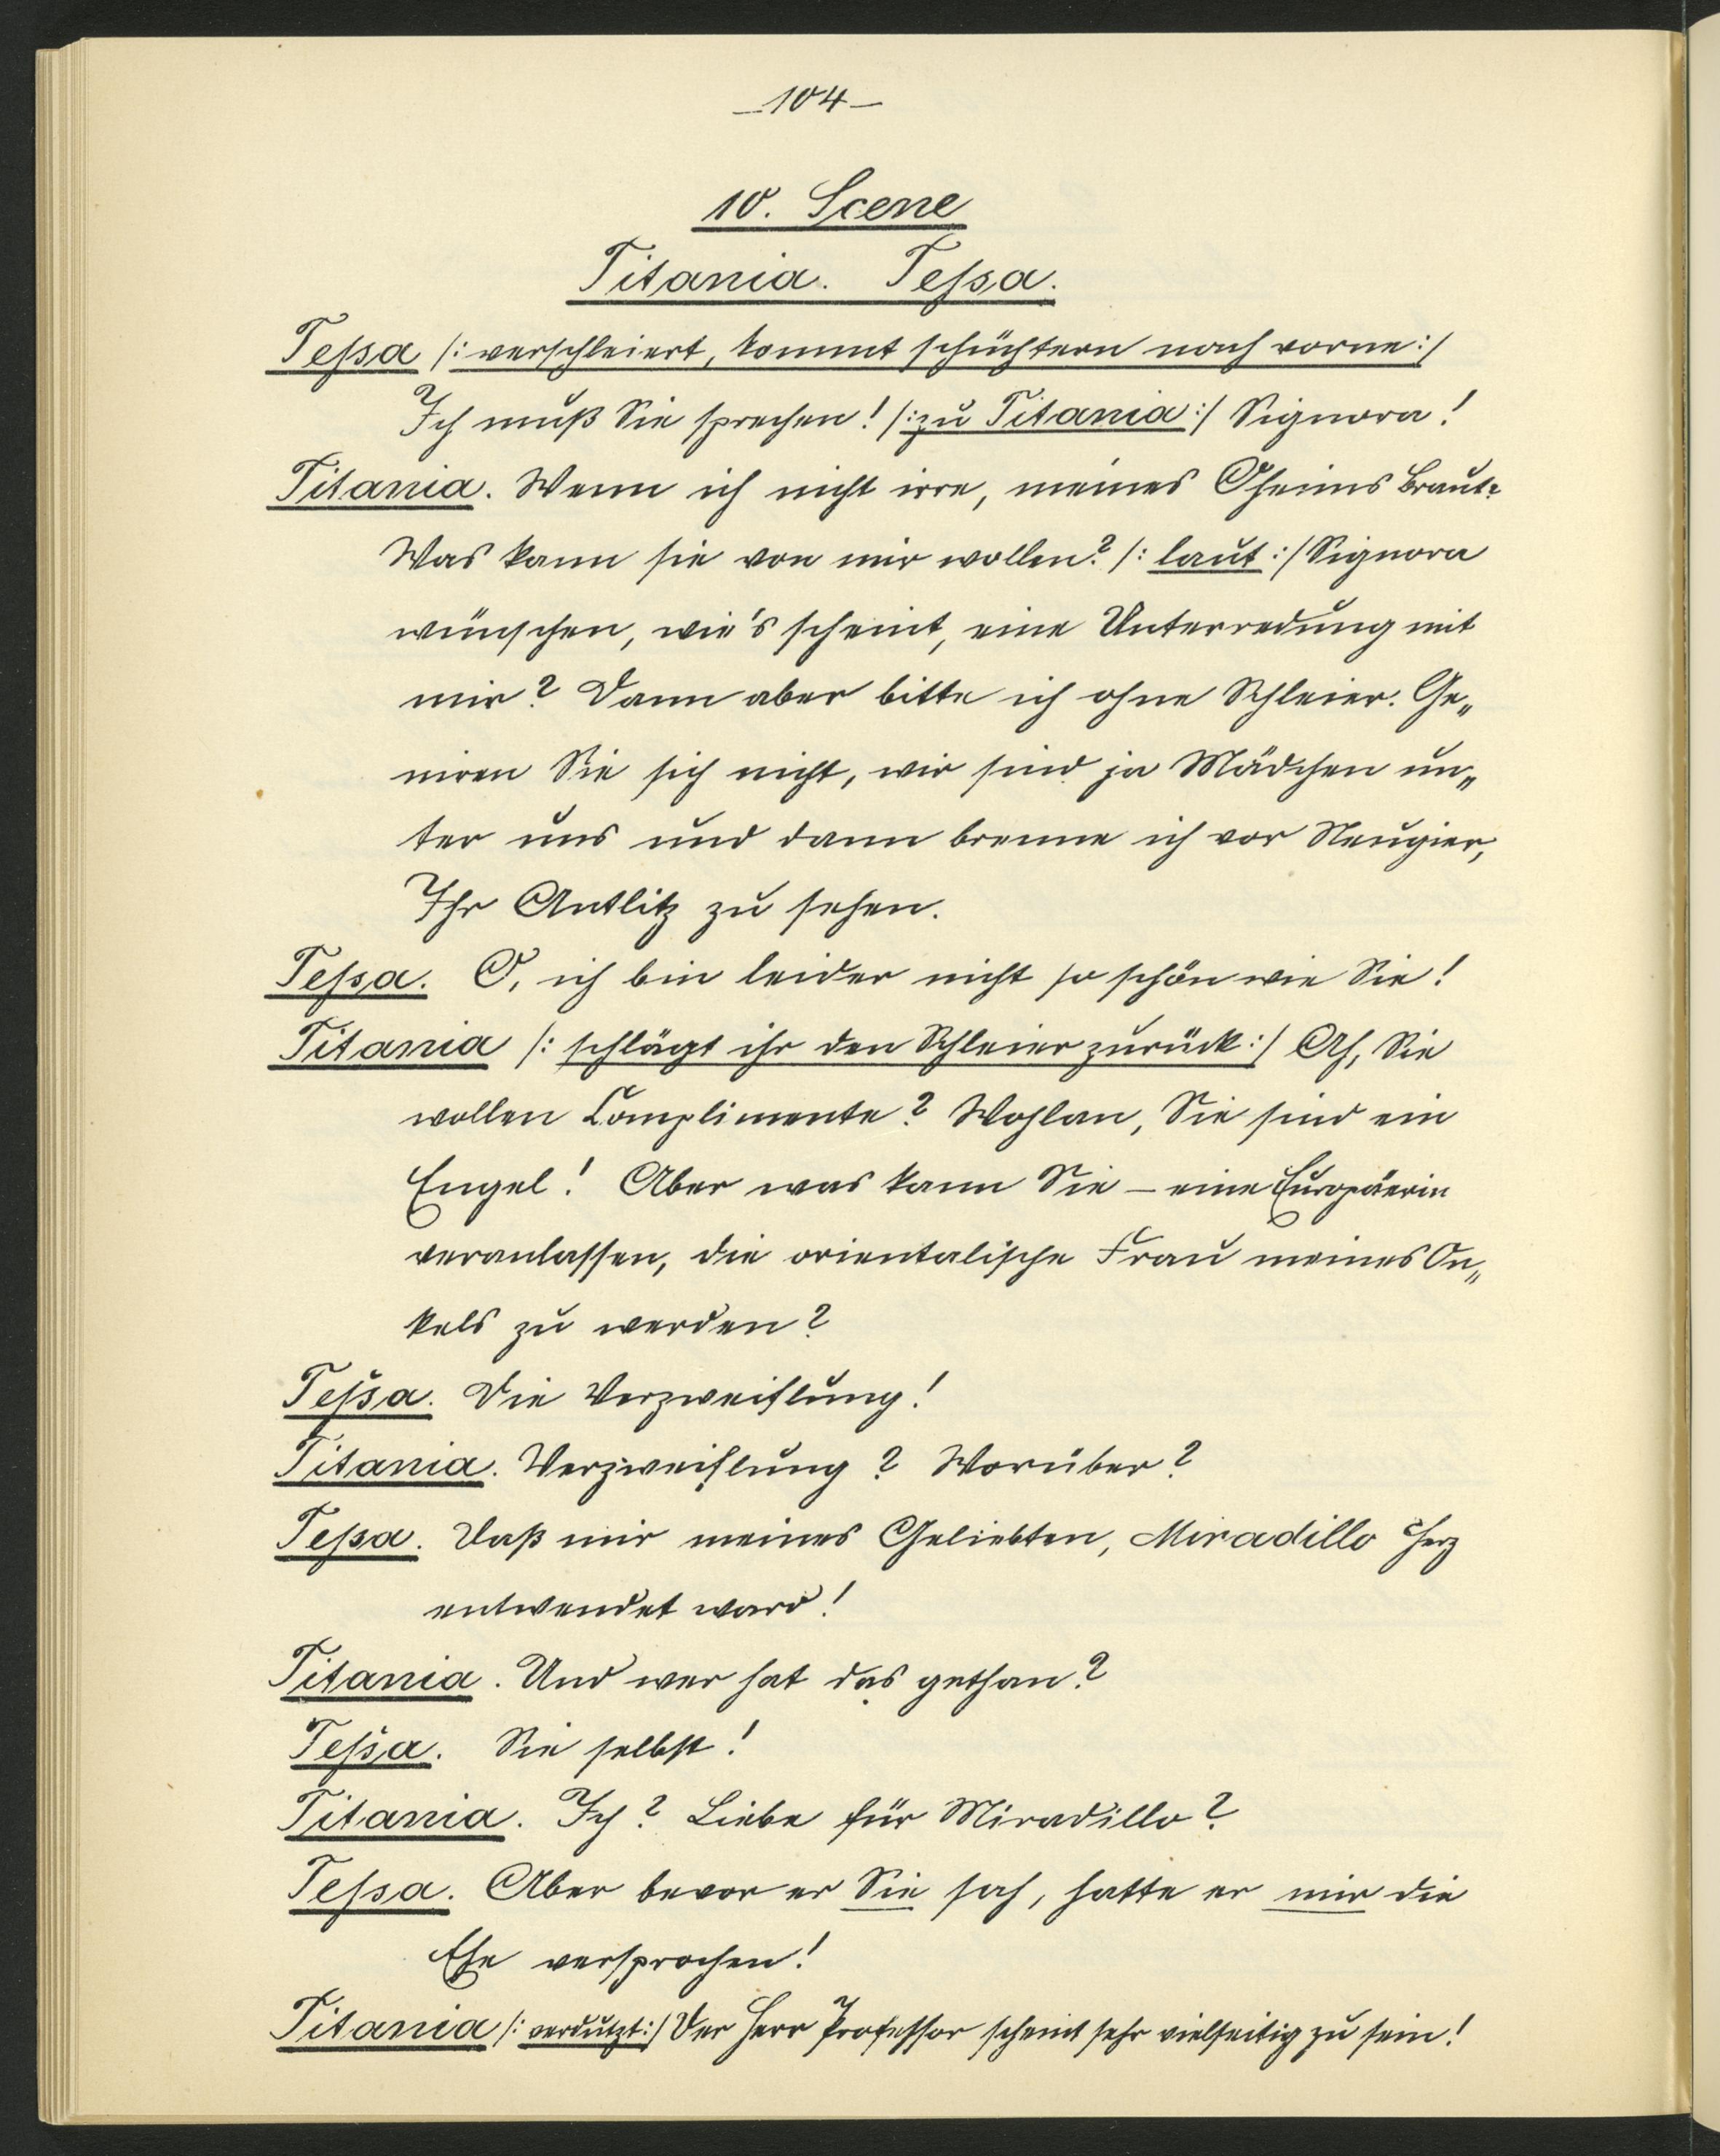 –104–
10. Scene
Titania. Teſsa.
Teſsa /: verschleiert, kommt schüchtern nach vorne :/
Ich muß Sie sprechen! /: zu Titania :/ Signora!
Titania. Wenn ich nicht irre, meines Oheims Braut?
Was kann sie von mir wollen? /: laut :/ Signora
wünschen, wie's scheint, eine Unterredung mit
mir? Dann aber bitte ich ohne Schleier. Ge„
niren Sie sich nicht, wir sind ja Mädchen un„
ter uns und dann brenne ich vor Neugier,
Ihr Antlitz zu sehen.
Teſsa. O, ich bin leider nicht so schön wie Sie!
Titania /: schlägt ihr den Schleier zurück :/ Ah, Sie
wollen Complimente? Wohlan, Sie sind ein
Engel! Aber was kann Sie – eine Europäerin
veranlassen, die orientalische Frau meines On„
kels zu werden?
Teſsa. Die Verzweiflung!
Titania. Verzweiflung? Worüber?
Teſsa. Daß mir meines Geliebten, Miradillo Herz
entwendet ward!
Titania. Und wer hat das gethan?
Teſsa. Sie selbst!
Titania. Ich? Liebe für Miradillo?
Teſsa. Aber bevor er Sie sah, hatte er mir die
Ehe versprochen!
Titania /: verdutzt :/ Der Herr Professor scheint sehr vielseitig zu sein!